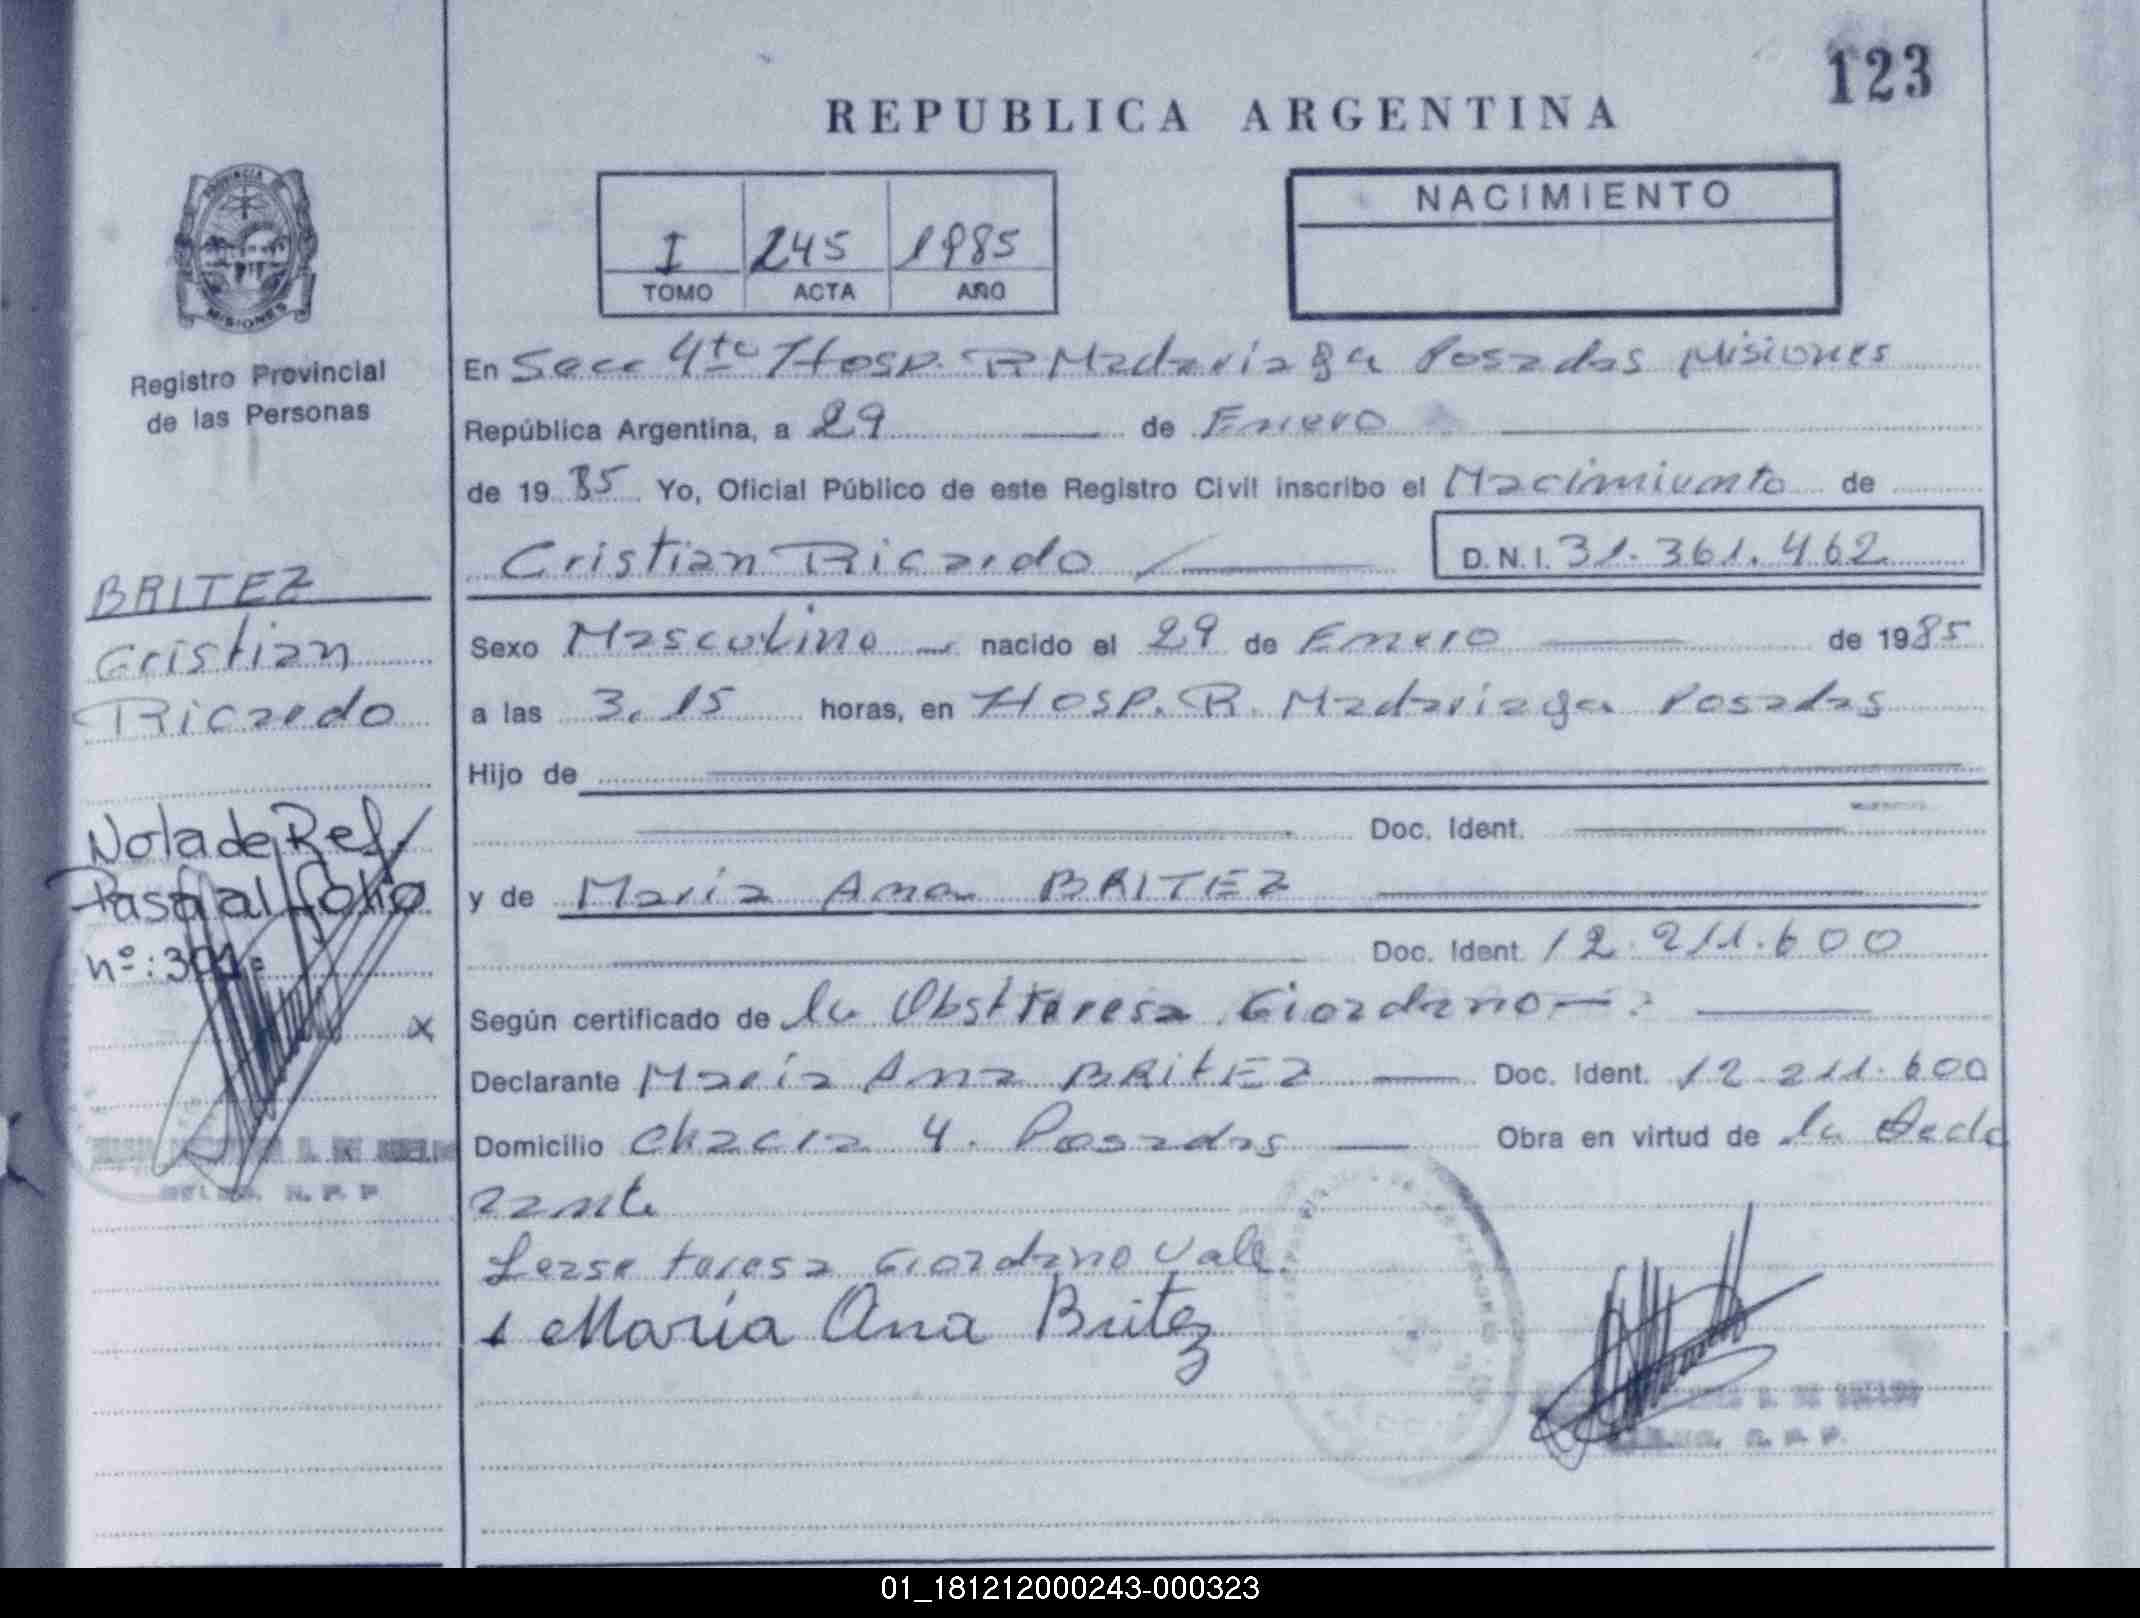 123
REPUBLICA ARGENTINA
PROVINCIA
MISIONES
Registro Provincial
de las Personas
I 245 1985
TOMO ACTA AÑO
NACIMIENTO
En Secc 4ta Hosp. R Madariaga Posadas Misiones
República Argentina, a 29 de Enero
de 19 85 Yo, Oficial Público de este Registro Civil inscribo el Nacimiento de
Cristian Ricardo D.N.I. 31.361.462
BRITEZ
Cristian
Ricardo
Sexo Masculino nacido el 29 de Enero de 1985
a las 3.15 horas, en Hosp. R. Madariaga Posadas
Hijo de
Doc. Ident.
y de Maria Ana BRITEZ
Doc. Ident. 12.211.600
Nota de Ref.
Pasa al folio
nº:
x
Según certificado de la Obst Teresa Giordano
Declarante María Ana BRITEZ Doc. Ident. 12.211.600
Domicilio Chacra 4. Posadas Obra en virtud de la Decla
rante
Lease teresa Giordano Vale.
María Ana Britez
01_181212000243-000323